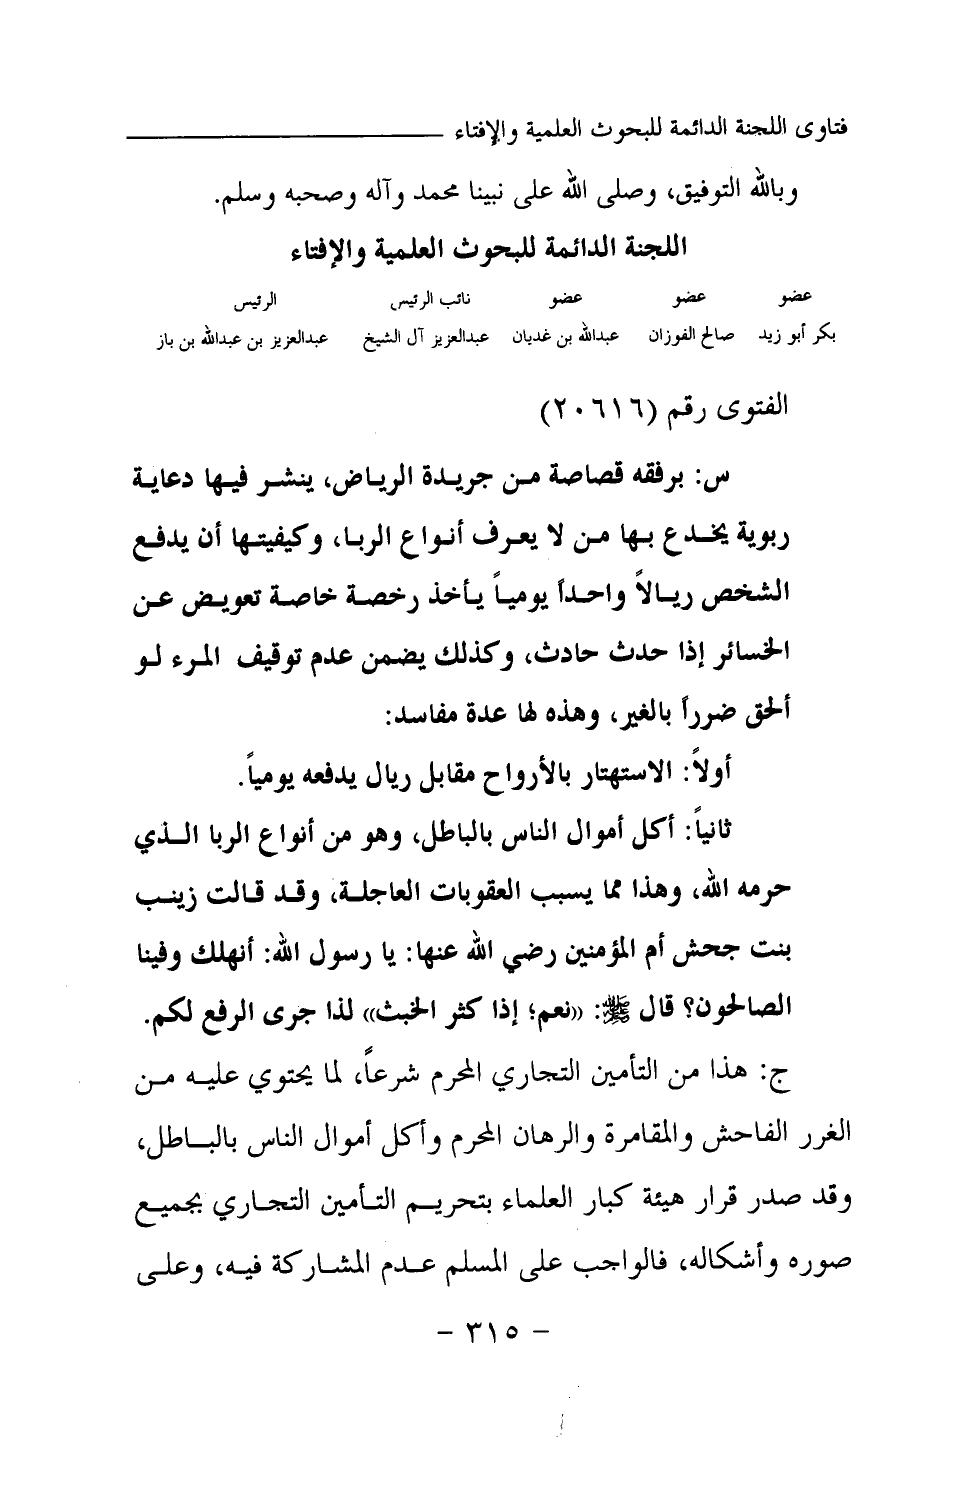 فتاوى اللجنة الدائمة للبحوث العلمية والإفتاء
وبالله التوفيق، وصلى الله على نبينا محمد وآله وصحبه وسلم.
اللجنة الدائمة للبحوث العلمية والإفتاء
عضو عضو عضو نائب الرئيس الرئيس
بكر أبو زيد صالح الفوزان عبدالله بن غديان عبدالعزيز آل الشيخ عبدالعزيز بن عبدالله بن باز
الفتوى رقم (٢٠٦١٦)
س: برفقه قصاصة من جريدة الرياض، ينشر فيها دعاية
ربوية يخدع بها من لا يعرف أنواع الربا، وكيفيتها أن يدفع
الشخص ريالاً واحداً يومياً يأخذ رخصة خاصة تعويض عن
الخسائر إذا حدث حادث، وكذلك يضمن عدم توقيف المرء لو
ألحق ضرراً بالغير، وهذه لها عدة مفاسد:
أولاً: الاستهتار بالأرواح مقابل ريال يدفعه يومياً.
ثانياً: أكل أموال الناس بالباطل، وهو من أنواع الربا الذي
حرمه الله، وهذا مما يسبب العقوبات العاجلة، وقد قالت زينب
بنت جحش أم المؤمنين رضي الله عنها: يا رسول الله: أنهلك وفينا
الصالحون؟ قال ﷺ: ((نعم؛ إذا كثر الخبث)) لذا جرى الرفع لكم.
ج: هذا من التأمين التجاري المحرم شرعاً، لما يحتوي عليه من
الغرر الفاحش والمقامرة والرهان المحرم وأكل أموال الناس بالباطل،
وقد صدر قرار هيئة كبار العلماء بتحريم التأمين التجاري بجميع
صوره وأشكاله، فالواجب على المسلم عدم المشاركة فيه، وعلى
- ٣١٥ -